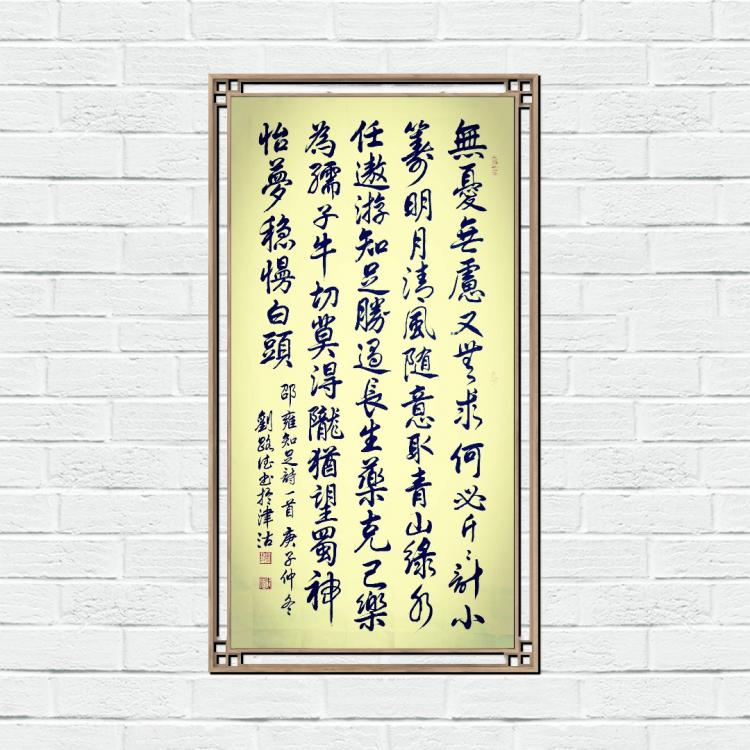 無憂無慮又無求何必斤斤計小
籌明月清風随意取青山綠水
任遨游知足勝過長生藥克己樂
為孺子牛切莫得隴猶望蜀神
怡夢穩慢白頭
邵雍知足詩一首 庚子仲冬
劉路德书於津沽